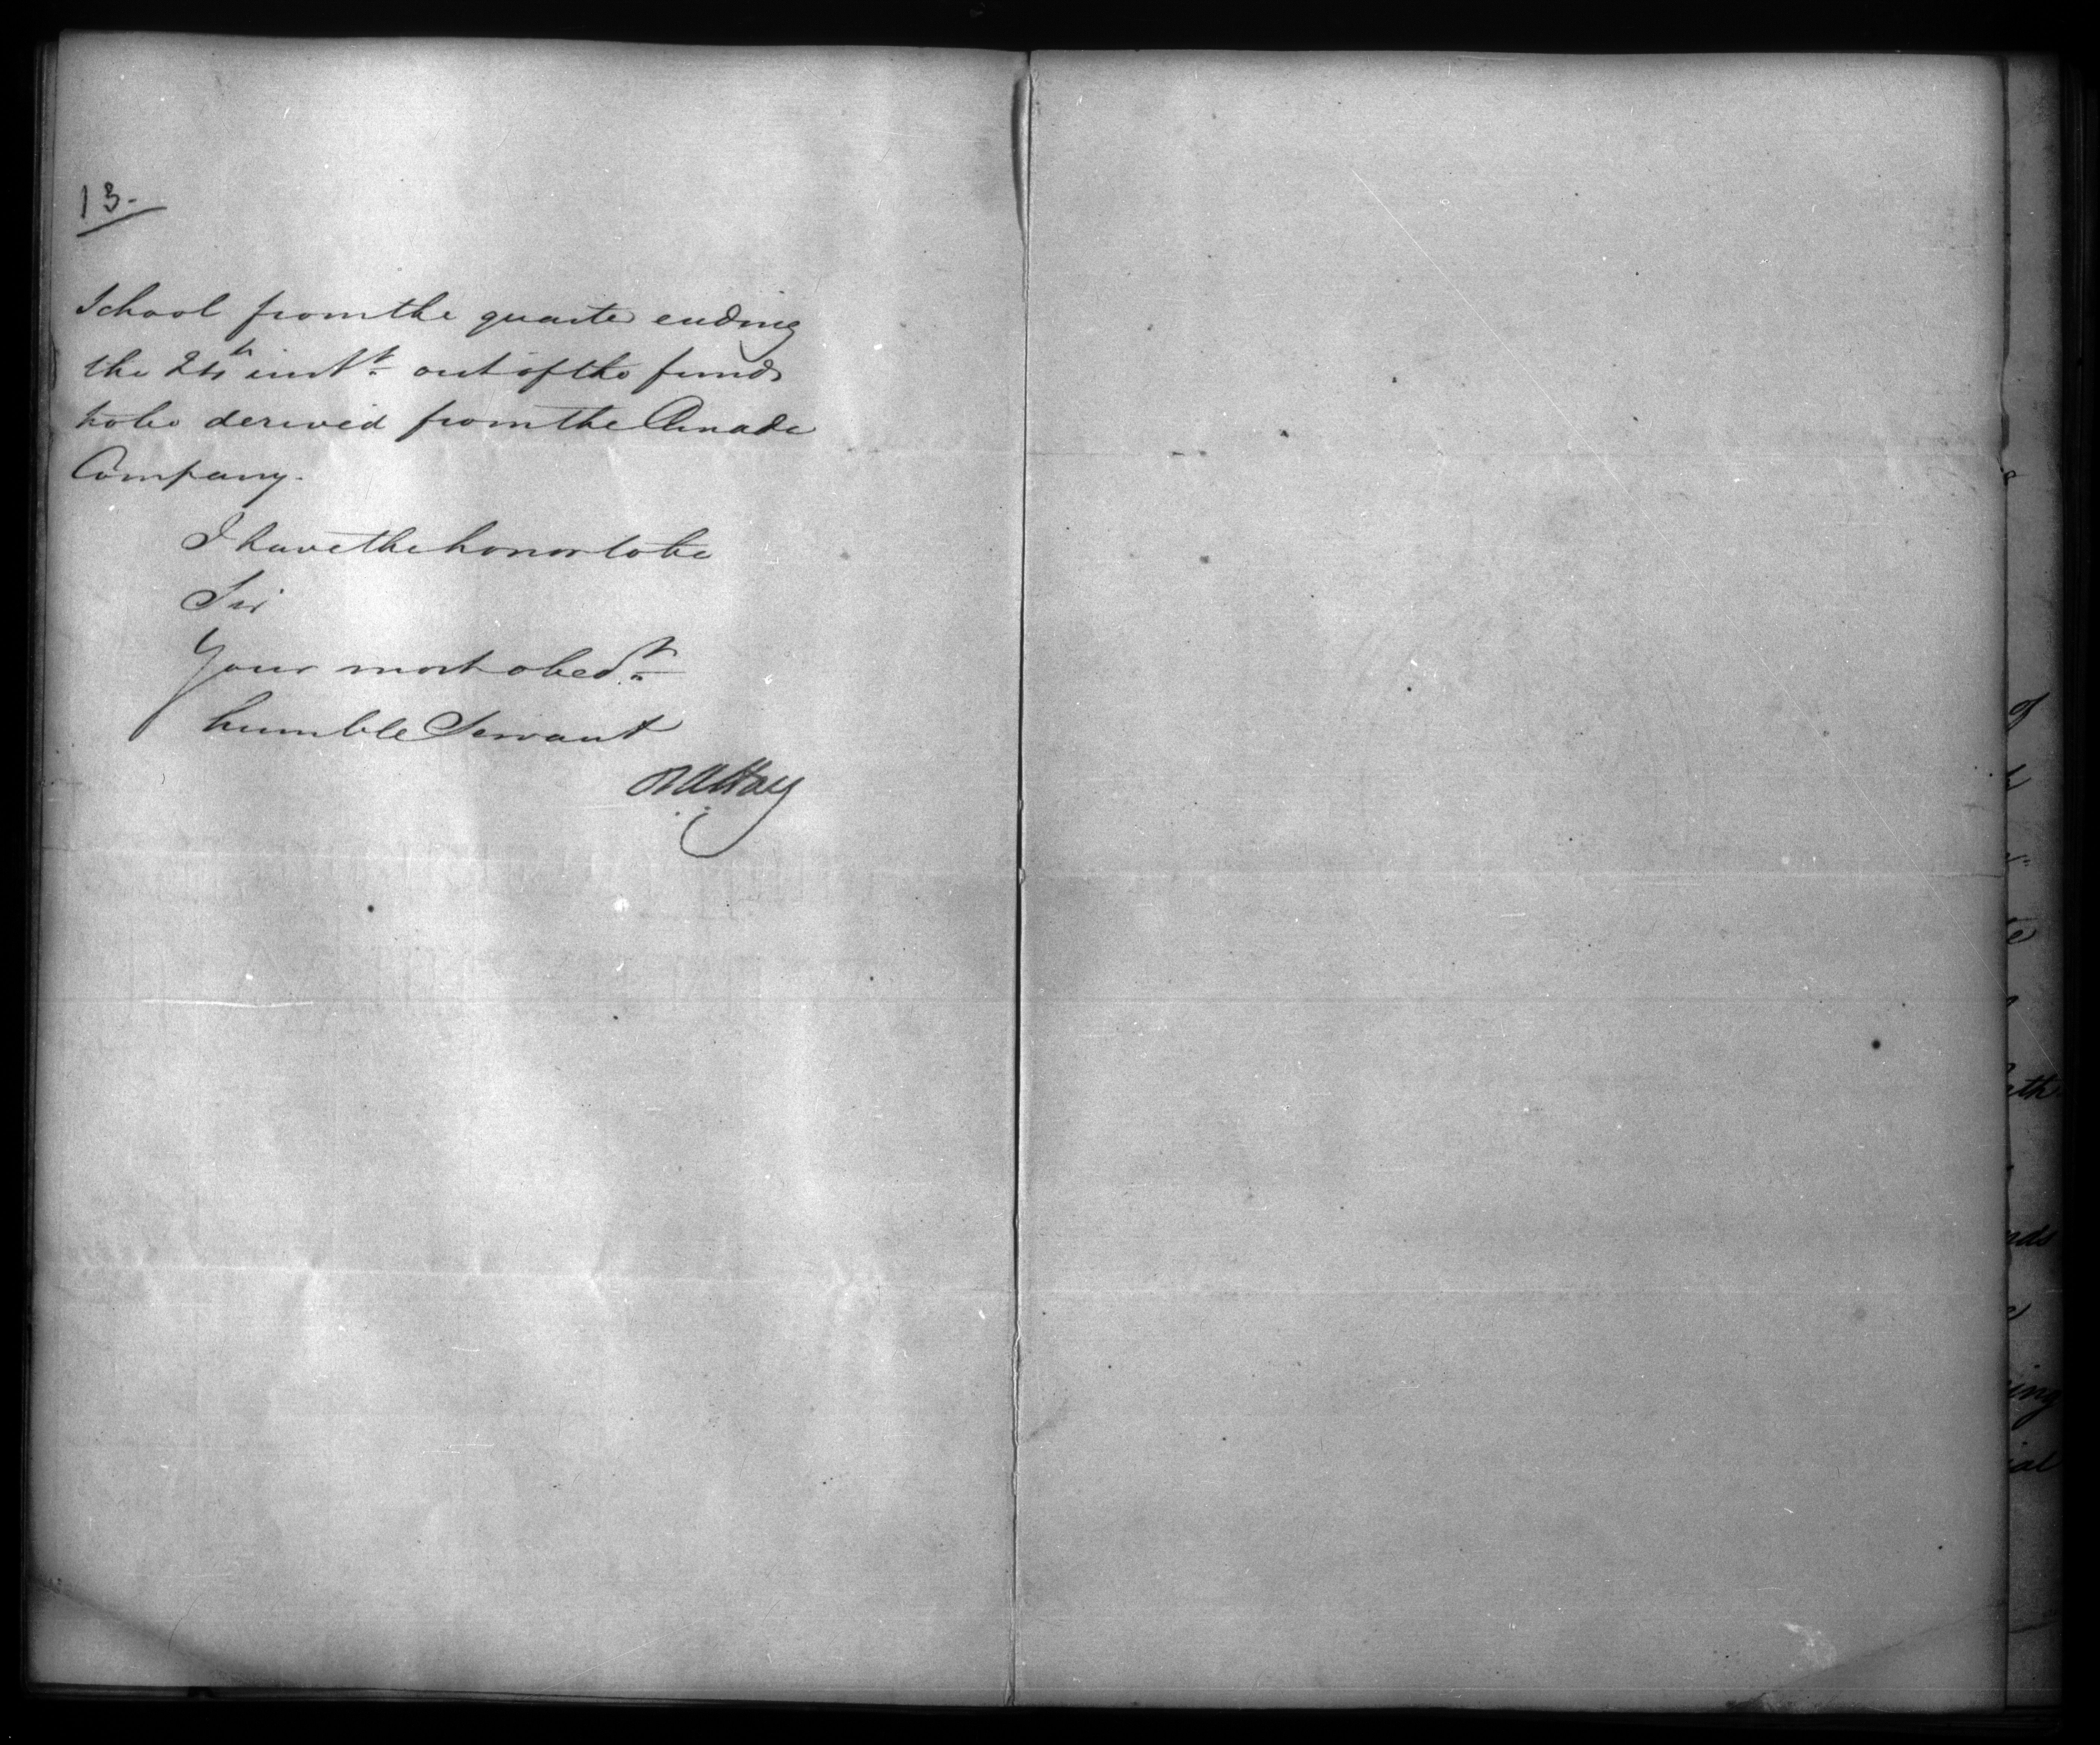 13-
School from the quarter ending
the 24th inst. out of the funds
to be derived from the Canada
Company.
I have the honor to be
Sir
Your most obedt.
humble Servant
RWHay